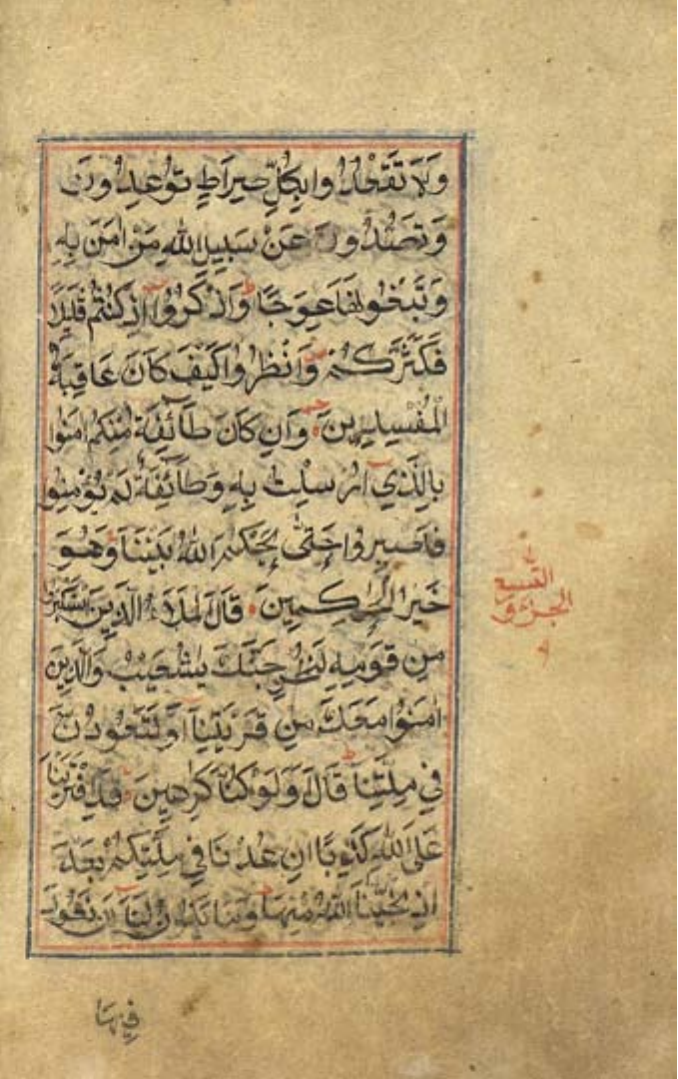 وَلَا تَقْعُدُوا بِكُلِّ صِرَاطٍ تُوعِدُونَ
وَتَصُدُّونَ عَنْ سَبِيلِ اللهِ مَنْ اٰمَنَ بِهِ
وَتَبْغُونَهَا عِوَجًا وَاذْكُرُوا اِذْ كُنْتُمْ قَلِيلًا
فَكَثَّرَكُمْ وَانْظُرُوا كَيْفَ كَانَ عَاقِبَةُ
الْمُفْسِدِينَ وَاِنْ كَانَ طَآئِفَةٌ مِنْكُمْ اٰمَنُوا
بِالَّذِي اُرْسِلْتُ بِهِ وَطَآئِفَةٌ لَمْ يُؤْمِنُوا
فَاصْبِرُوا حَتّٰى يَحْكُمَ اللهُ بَيْنَنَا وَهُوَ
خَيْرُ الْحٰكِمِينَ قَالَ الْمَلَاُ الَّذِينَ اسْتَكْبَرُوا
مِنْ قَوْمِهِ لَنُخْرِجَنَّكَ يٰشُعَيْبُ وَالَّذِينَ
اٰمَنُوا مَعَكَ مِنْ قَرْيَتِنَآ اَوْ لَتَعُودُنَّ
فِي مِلَّتِنَا قَالَ اَوَلَوْ كُنَّا كٰرِهِينَ قَدِ افْتَرَيْنَا
عَلَى اللهِ كَذِبًا اِنْ عُدْنَا فِي مِلَّتِكُمْ بَعْدَ
اِذْ نَجّٰينَا اللهُ مِنْهَا وَمَا يَكُونُ لَنَآ اَنْ نَعُودَ
فِيهَا
الجزء